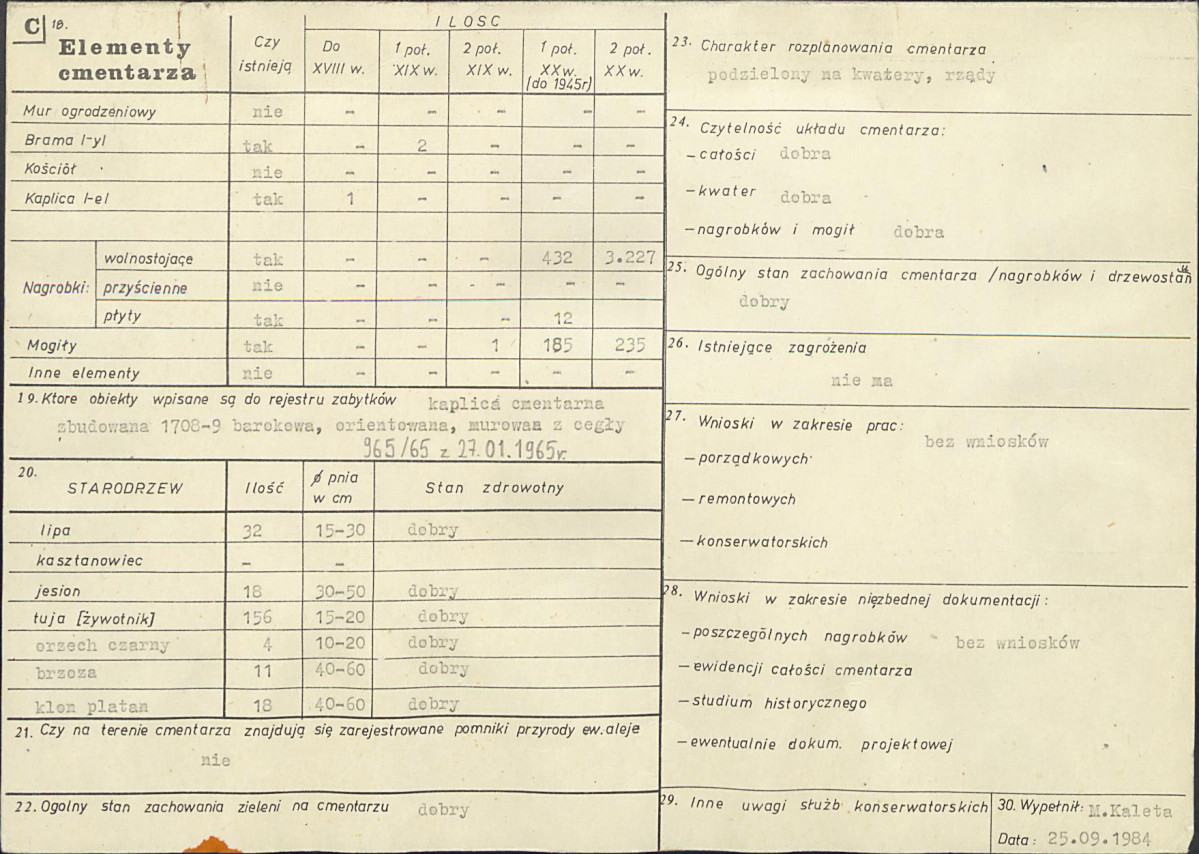 C 18.
Elementy
cmentarza
Czy
istnieją
ILOSC
Do
XVIII w.
1 poł.
XIX w.
2 poł.
XIX w.
1 poł.
XX w.
(do 1945r)
2 poł.
XX w.
Mur ogrodzeniowy nie - - - - -
Brama /-y/ tak - 2 - - -
Kościół nie - - - - -
Kaplica /-e/ tak 1 - - - -
Nagrobki: wolnostojące tak - - - 432 3.227
przyścienne nie - - - - -
płyty tak - - - 12
Mogiły tak - - 1 185 235
Inne elementy nie - - - - -
19. Ktore obiekty wpisane są do rejestru zabytków kaplica cmentarna
zbudowana 1708-9 barokowa, orientowana, murowaa z cegły
965/65 z 27.01.1965r.
20.
STARODRZEW Ilość ø pnia
w cm Stan zdrowotny
lipa 32 15-30 dobry
kasztanowiec - -
jesion 18 30-50 dobry
tuja [żywotnik] 156 15-20 dobry
orzech czarny 4 10-20 dobry
brzoza 11 40-60 dobry
klon platan 18 40-60 dobry
21. Czy na terenie cmentarza znajdują się zarejestrowane pomniki przyrody ew. aleje
nie
22. Ogolny stan zachowania zieleni na cmentarzu dobry
23. Charakter rozplanowania cmentarza
podzielony na kwatery, rządy
24. Czytelność układu cmentarza:
- całości dobra
- kwater dobra
- nagrobków i mogił dobra
25. Ogólny stan zachowania cmentarza /nagrobków i drzewostan
dobry
26. Istniejące zagrożenia
nie ma
27. Wnioski w zakresie prac:
bez wniosków
- porządkowych
- remontowych
- konserwatorskich
28. Wnioski w zakresie nięzbednej dokumentacji:
- poszczególnych nagrobków bez wniosków
- ewidencji całości cmentarza
- studium historycznego
- ewentualnie dokum. projektowej
29. Inne uwagi służb konserwatorskich
30. Wypełnił: M.Kaleta
Data: 25.09.1984